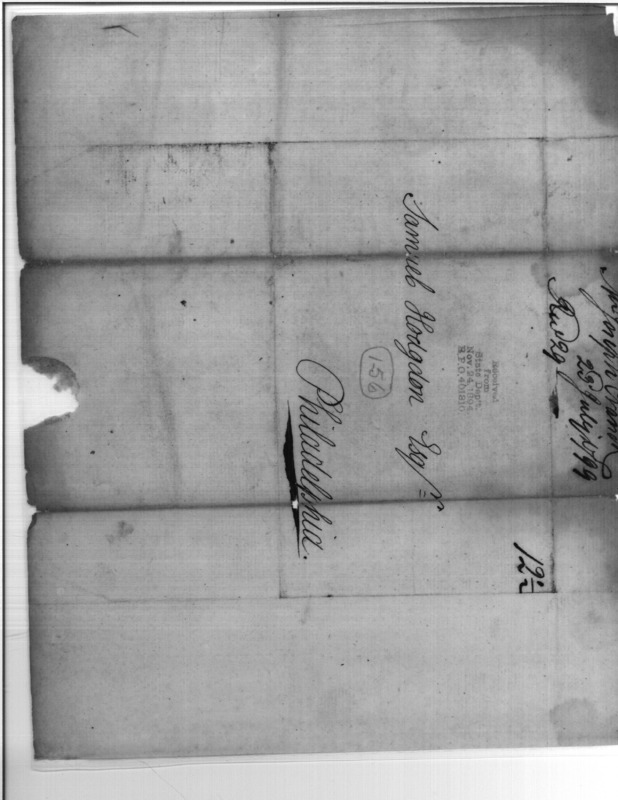 25 July 1799
Recd 29
12½
Received
from
State Dept.
Nov. 24, 1904
R.P.O. 401810
156
Samuel Hodgdon Esqr
Philadelphia.